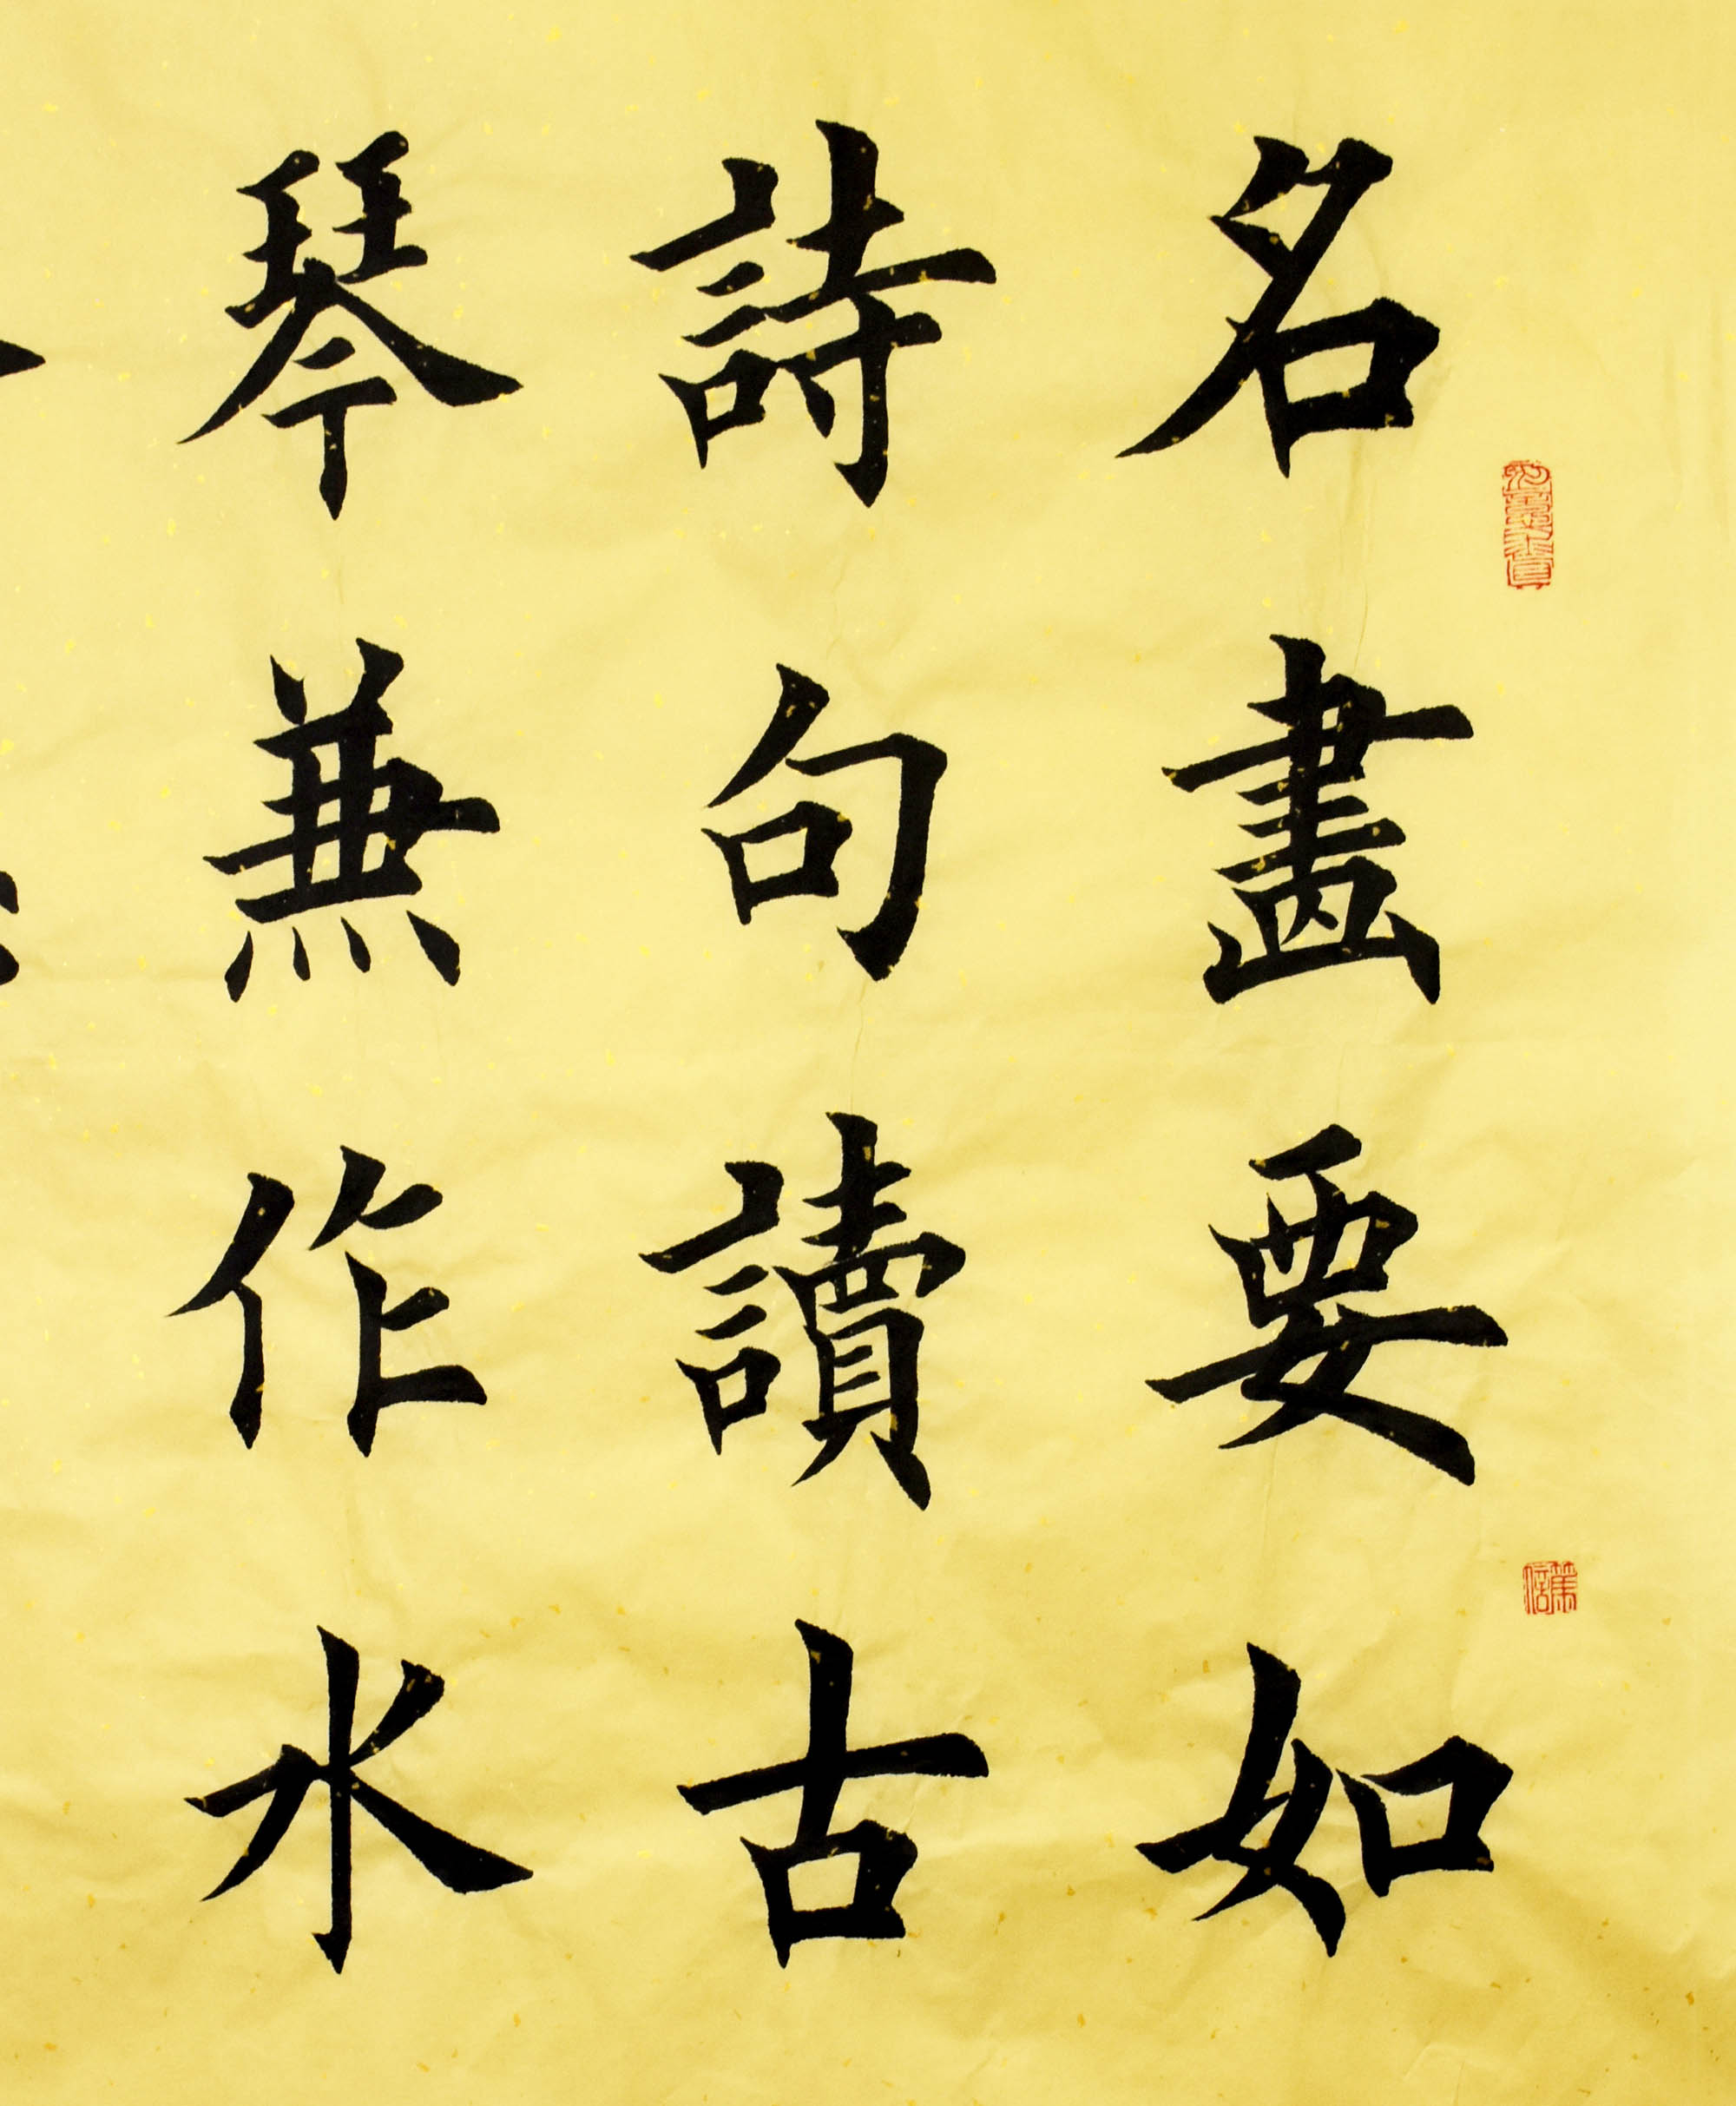 名畫要如
詩句讀古
琴兼作水